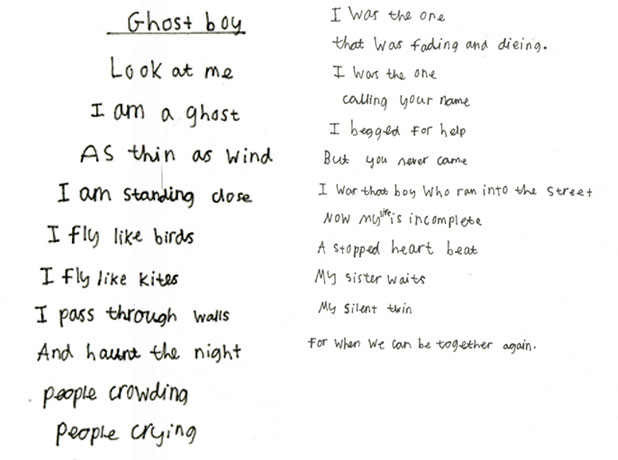 Ghost boy
Look at me
I am a ghost
As thin as wind
I am standing close
I fly like birds
I fly like kites
I pass through walls
And haunt the night
people crowding
people crying
I was the one
that was fading and dieing.
I was the one
calling your name
I begged for help
But you never came
I war that boy who ran into the street
Now my life is incomplete
A stopped heart beat
My sister waits
My silent twin
For when we can be together again.